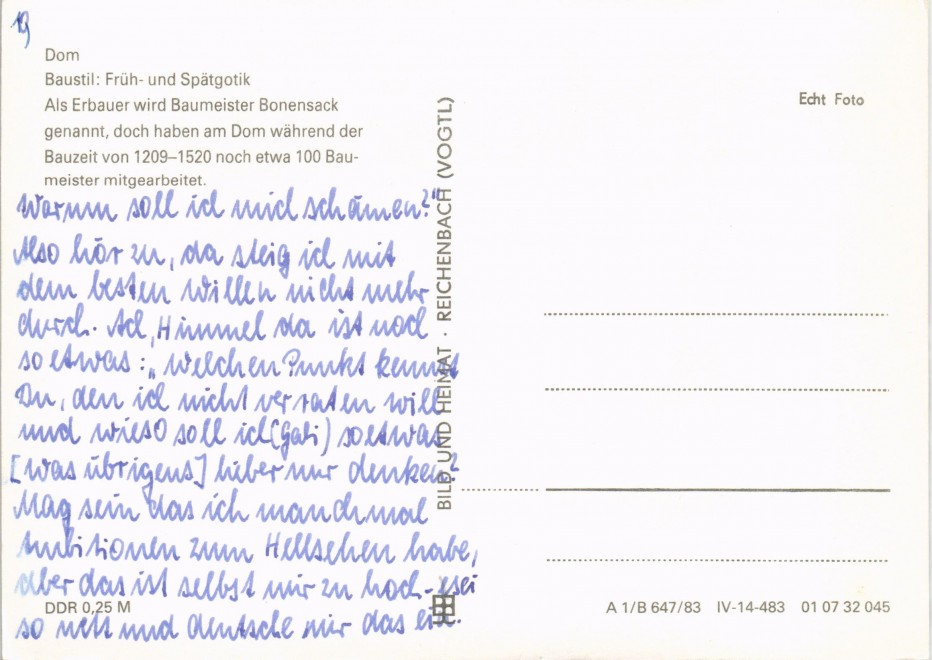 19
Dom
Baustil: Früh- und Spätgotik
Als Erbauer wird Baumeister Bonensack
genannt, doch haben am Dom während der
Bauzeit von 1209–1520 noch etwa 100 Bau-
meister mitgearbeitet.
Echt Foto
BILD UND HEIMAT · REICHENBACH (VOGTL)
Warum soll ich mich schämen?"
Also hör zu, da steig ich mit
dem besten Willen nicht mehr
durch. Ach, Himmel da ist noch
so etwas: „Welchen Punkt kennst
Du, den ich nicht verraten will
und wieso soll ich (Gabi) so etwas
[was übrigens] lieber nur denken?
Mag sein das ich manchmal
Ambitionen zum Hellsehen habe,
aber das ist selbst mir zu hoch - sei
so nett und deutsche mir das ein.
DDR 0,25 M
A 1/B 647/83 IV-14-483 01 07 32 045